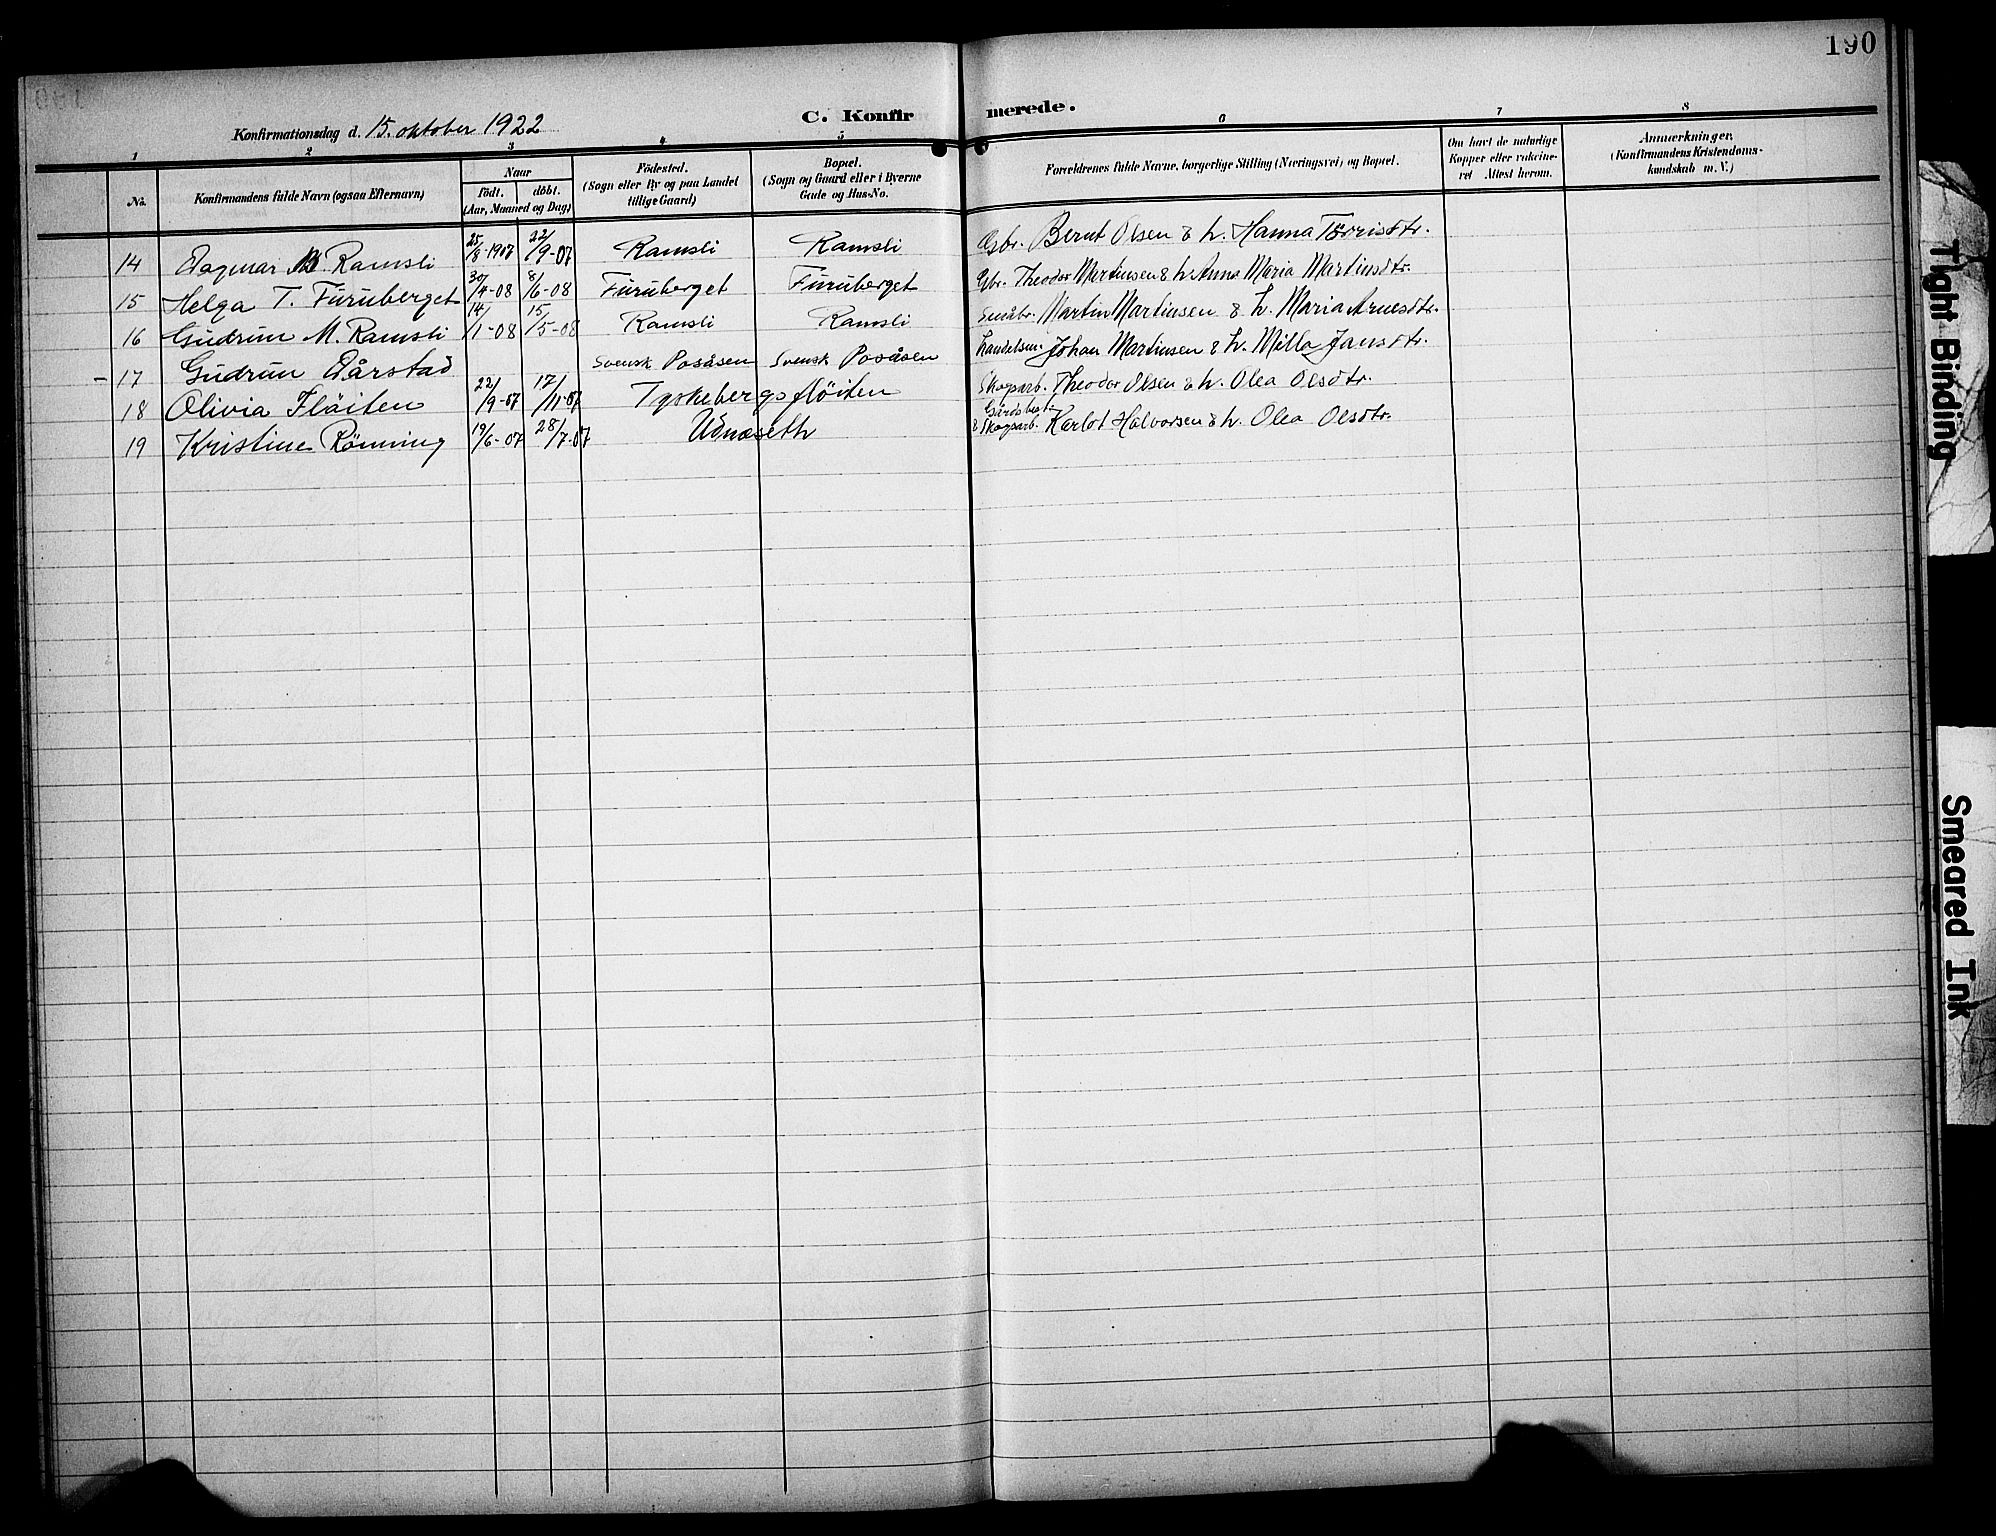 190
C. Konfirmerede.
Konfirmationsdag d. 15. oktober 1922
1 2 3 4 5 6 7 8
No.
Konfirmandens fulde Navn (ogsaa Efternavn)
Naar
födt. döbt.
(Aar, Maaned og Dag)
Födested.
(Sogn eller By og paa Landet
tillige Gaard)
Bopæl.
(Sogn og Gaard eller i Byerne
Gade og Hus-No.
Forældrenes fulde Navne, borgerlige Stilling (Næringsvei) og Bopæl.
Om havt de naturlige
Kopper eller vakcine-
ret Attest herom.
Anmærkninger.
(Konfirmandens Kristendoms-
kundskab m. V.)
14 Dagmar B. Ramsli 25/8-1907 22/9-07 Ramsli Ramsli Gbr. Bernt Olsen & h. Hanna Tørrisdtr.
15 Helga T. Furuberget 30/4-08 8/6-08 Furuberget Furuberget Gbr. Theodor Martinsen & h. Anna Maria Martinsdtr.
16 Gudrun M. Ramsli 14/1-08 15/5-08 Ramsli Ramsli Småbr. Martin Martinsen & h. Maria Arnesdtr.
– 17 Gudrun Aårstad Svensk Posåsen Svensk Posåsen Handelsm. Johan Martinsen & h. Milla Jansdtr.
18 Olivia Fløiten 22/9-07 17/11-07 Tyskebergsfløiten Skogsarb. Theodor Olsen & h. Olea Olsdtr.
19 Kristine Rønning 19/6-07 28/7-07 Udnæseth Gårdbest. & Skogsarb. Karlot Halvorsen & h. Olea Olsdtr.
Tight Binding
Smeared Ink